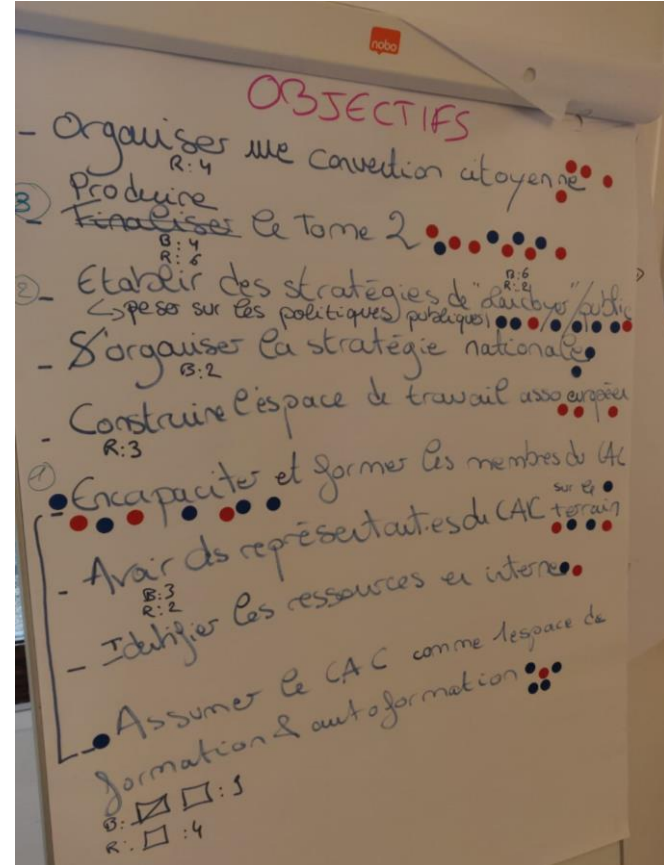 nobo
OBJECTIFS
- Organiser une convention citoyenne
R: 4
Produire
3 - Finaliser le Tome 2
B: 4
R: 6
B: 6
R: 2
2 - Etablir des stratégies de "
↳ peser sur les politiques publiques
- S'organiser la stratégie nationale
B: 2
- Construire l'espace de travail asso européen
R: 3
1 - Encapaciter et former les membres du CAC
sur le
- Avoir des représentant·es du CAC terrain
B: 3
R: 2
- Identifier les ressources en interne
- Assumer le CAC comme 1 espace de
formation & autoformation
B: : 5
R: : 4